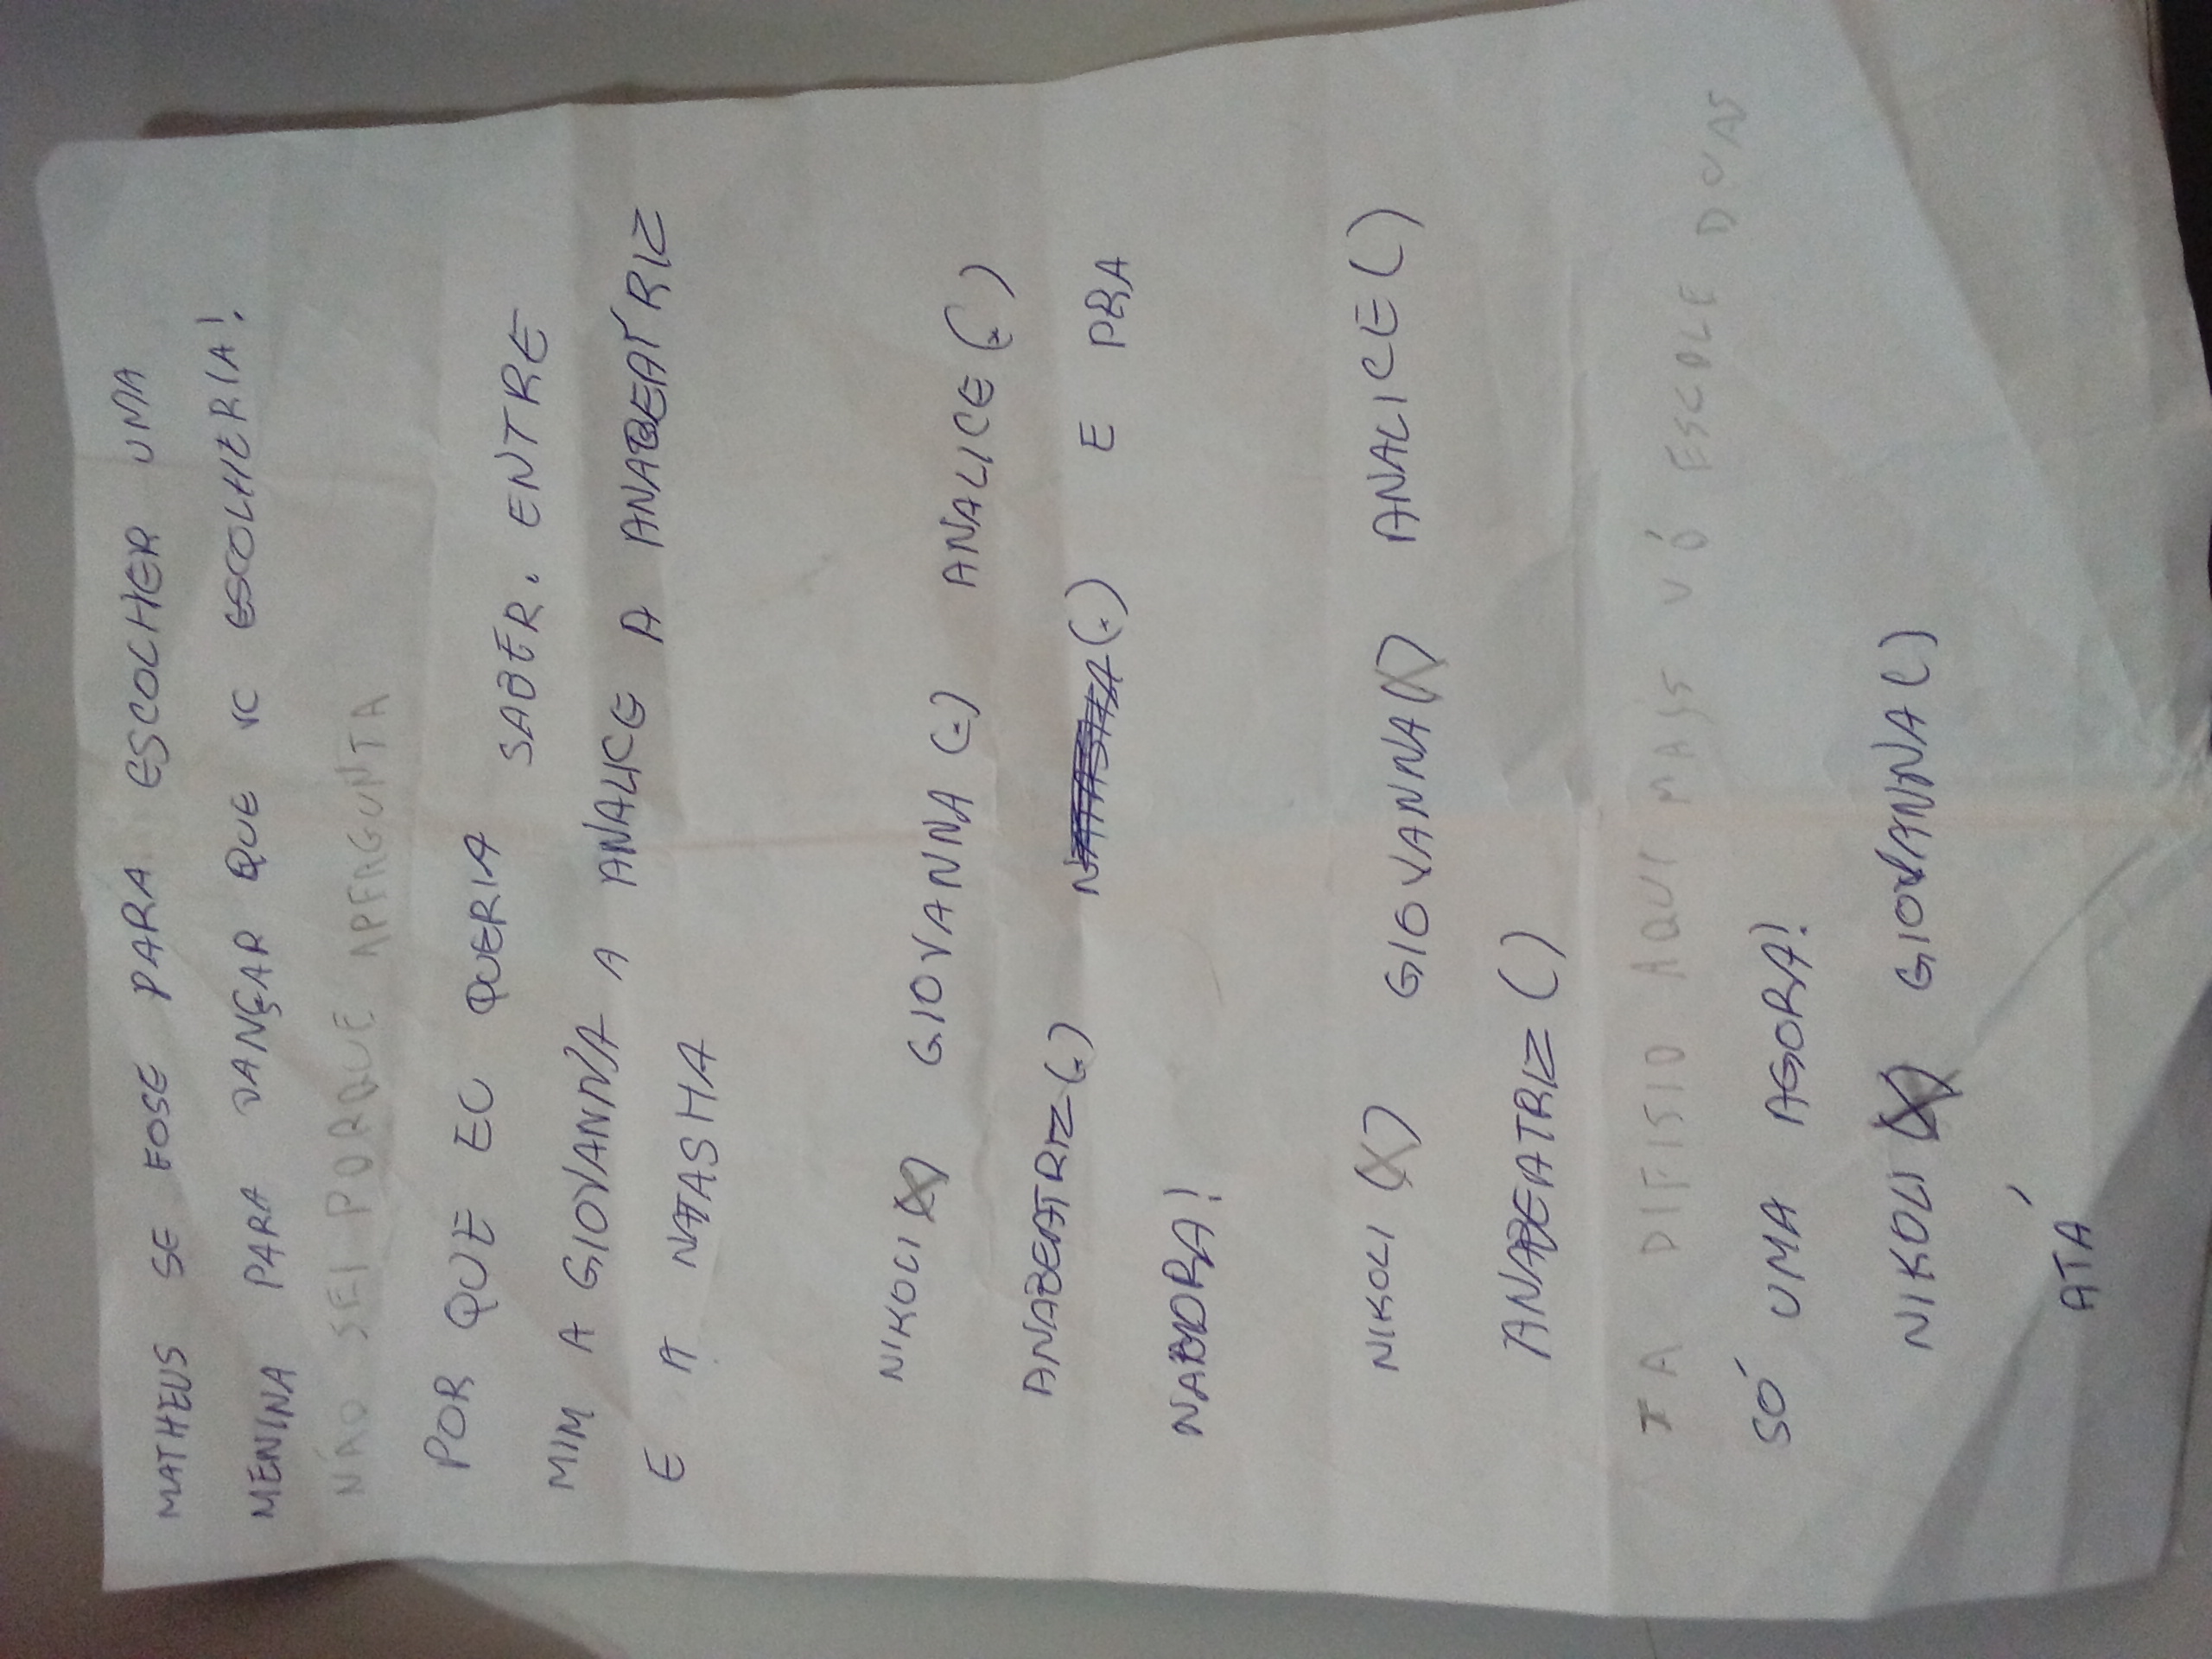 MATHEUS SE FOSE PARA ESCOLHER UMA
MENINA PARA DANÇAR QUE VC ESCOLHERIA!
NÃO SEI PORQUE APERGUNTA
POR QUE EU QUERIA SABER. ENTRE
MIM A GIOVANNA A ANALICE A ANABEATRIZ
E A NATASHA
NIKOLI (X) GIOVANNA (-) ANALICE (-)
ANABEATRIZ (-) NATASHA (-) E PRA
NAMORA!
NIKOLI (X) GIOVANNA (X) ANALICE ( )
ANABEATRIZ ( )
TA DIFISIO AQUI MAIS VÓ ESCOLE DUAS
SÓ UMA AGORA!
NIKOLI (X) GIOVANNA ( )
ATÁ